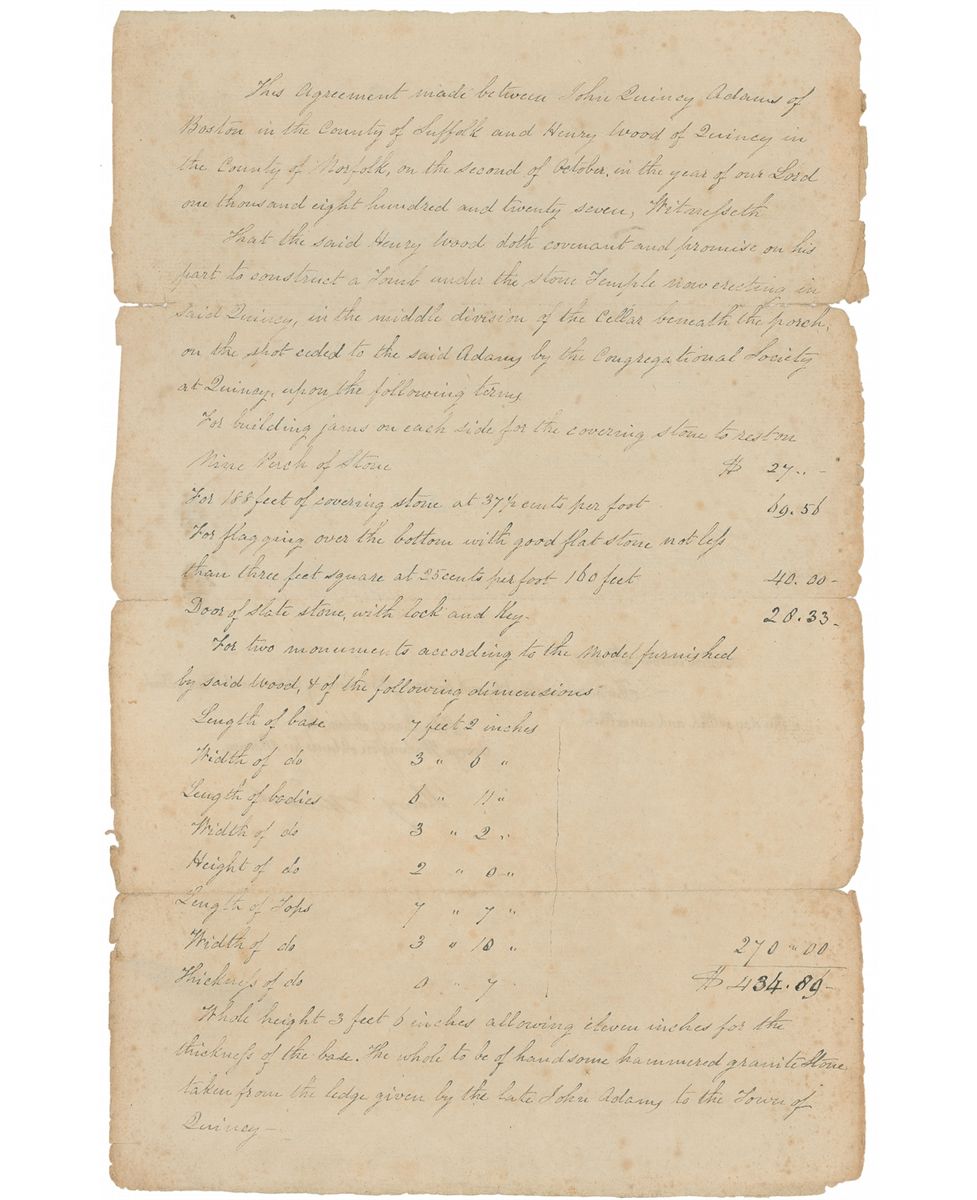 This Agreement made between John Quincy Adams of
Boston in the County of Suffolk and Henry Wood of Quincy in
the County of Norfolk, on the second of October, in the year of our Lord
one thousand eight hundred and twenty seven, Witnesseth
That the said Henry Wood doth covenant and promise on his
part to construct a Tomb under the stone Temple now erecting in
said Quincy, in the middle division of the Cellar beneath the porch,
on the spot ceded to the said Adams by the Congregational Society
at Quincy, upon the following terms
For building jams on each side for the covering stone to rest on
Nine Perch of Stone $ 27..-
For 188 feet of covering stone at 37 1/2 cents per foot 69.56
For flagging over the bottom with good flat stone not less
than three feet square at 25 cents per foot 160 feet 40.00-
Door of slate stone, with lock and Key- 28.33-
For two monuments according to the Model furnished
by said Wood, & of the following dimensions
Length of base 7 feet 2 inches
Width of do 3 " 6 "
Length of bodies 6 " 11 "
Width of do 3 " 2 "
Height of do 2 " 0 "
Length of Tops 7 " 7 "
Width of do 3 " 10 " 270 " 00
Thickness of do 0 " 7 $ 434.89-
Whole height 3 feet 6 inches allowing eleven inches for the
thickness of the base. The whole to be of handsome hammered granite Stone
taken from the ledge given by the late John Adams to the Town of
Quincy-